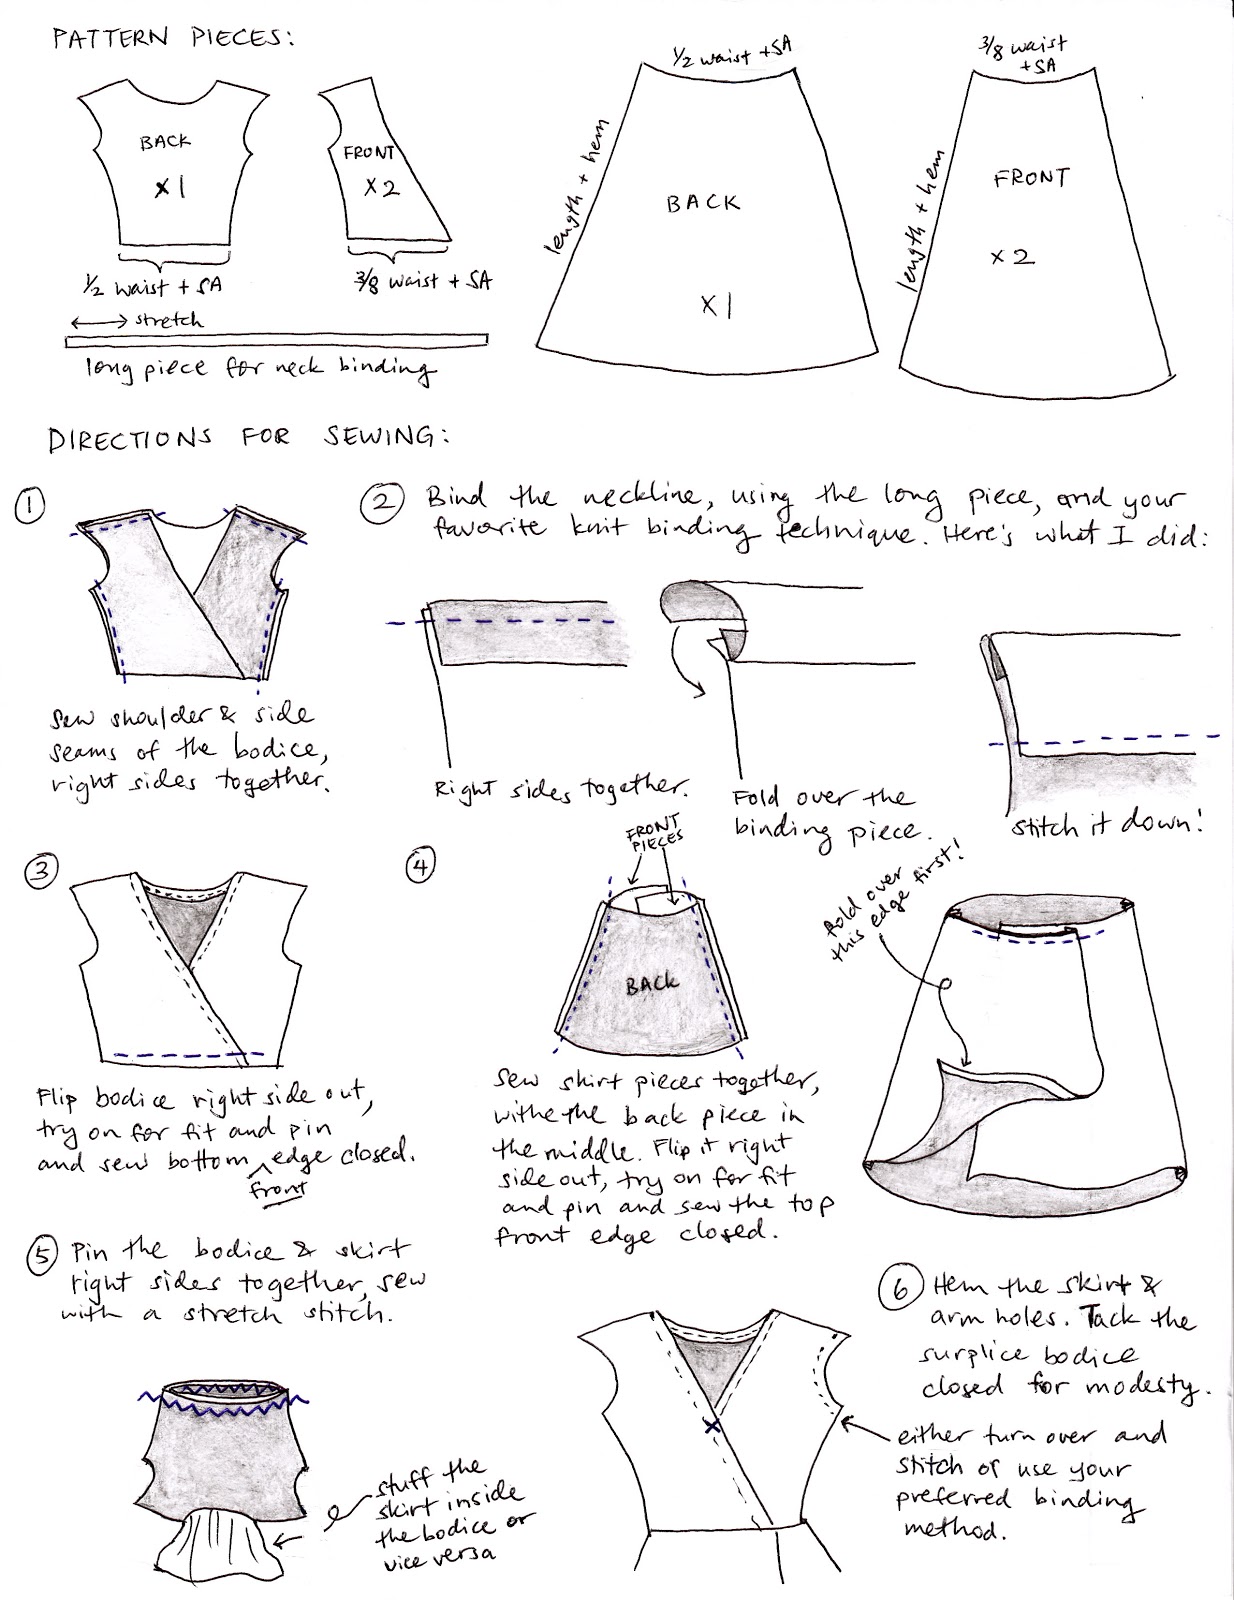 PATTERN PIECES:
BACK
x1
1/2 waist + SA
FRONT
x2
3/8 waist + SA
stretch
long piece for neck binding
1/2 waist + SA
length + hem
BACK
x1
3/8 waist
+ SA
length + hem
FRONT
x2
DIRECTIONS FOR SEWING:
1
Sew shoulder & side
seams of the bodice,
right sides together.
2
Bind the neckline, using the long piece, and your
favorite knit binding technique. Here's what I did:
Right sides together.
Fold over the
binding piece.
Stitch it down!
3
Flip bodice right side out,
try on for fit and pin
and sew bottom edge closed.
front
4
FRONT
PIECES
BACK
Sew skirt pieces together,
withe the back piece in
the middle. Flip it right
side out, try on for fit
and pin and sew the top
front edge closed.
fold over
this edge first!
5
Pin the bodice & skirt
right sides together, sew
with a stretch stitch.
stuff the
skirt inside
the bodice or
vice versa
6
Hem the skirt &
arm holes. Tack the
surplice bodice
closed for modesty.
either turn over and
stitch or use your
preferred binding
method.